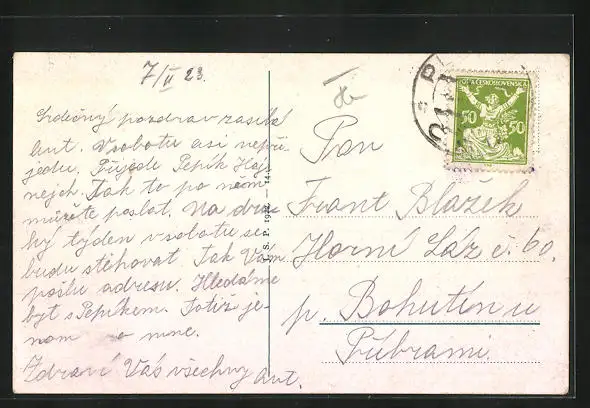 7/II 23.
Srdečný pozdrav zasílá
Ant. V sobotu asi nepři
jedu. Přijede Pepík Haj
nejch. Tak to po něm
můžete poslat. Na dru
hý týden v sobotu se
budu stěhovat. Tak Vám
pošlu adresu. Hledáme
byt s Pepíkem. Totiž je-
nom pro mne.
Zdraví Vás všechny Ant.
Pan
Frant Blažek
Horní Láz č. 60.
p. Bohutín u
Příbrami
ČESKOSLOVENSKÁ
50 50